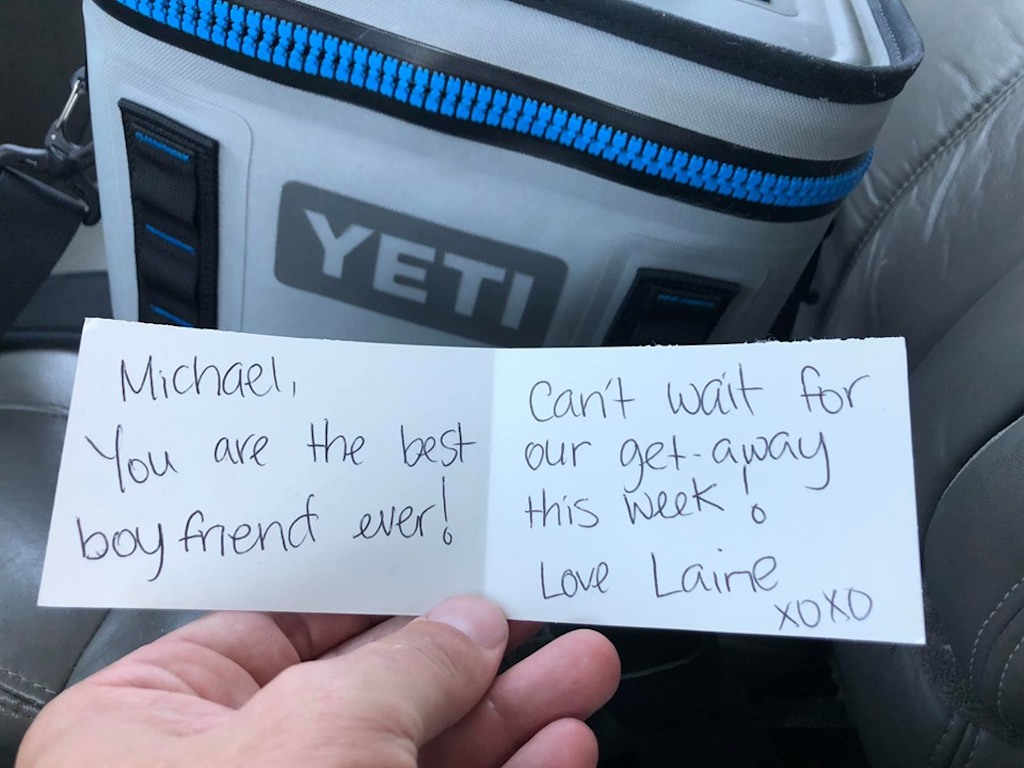 YETI
Michael,
You are the best
boyfriend ever!
Can't wait for
our get-away
this week!
Love Laine
XOXO